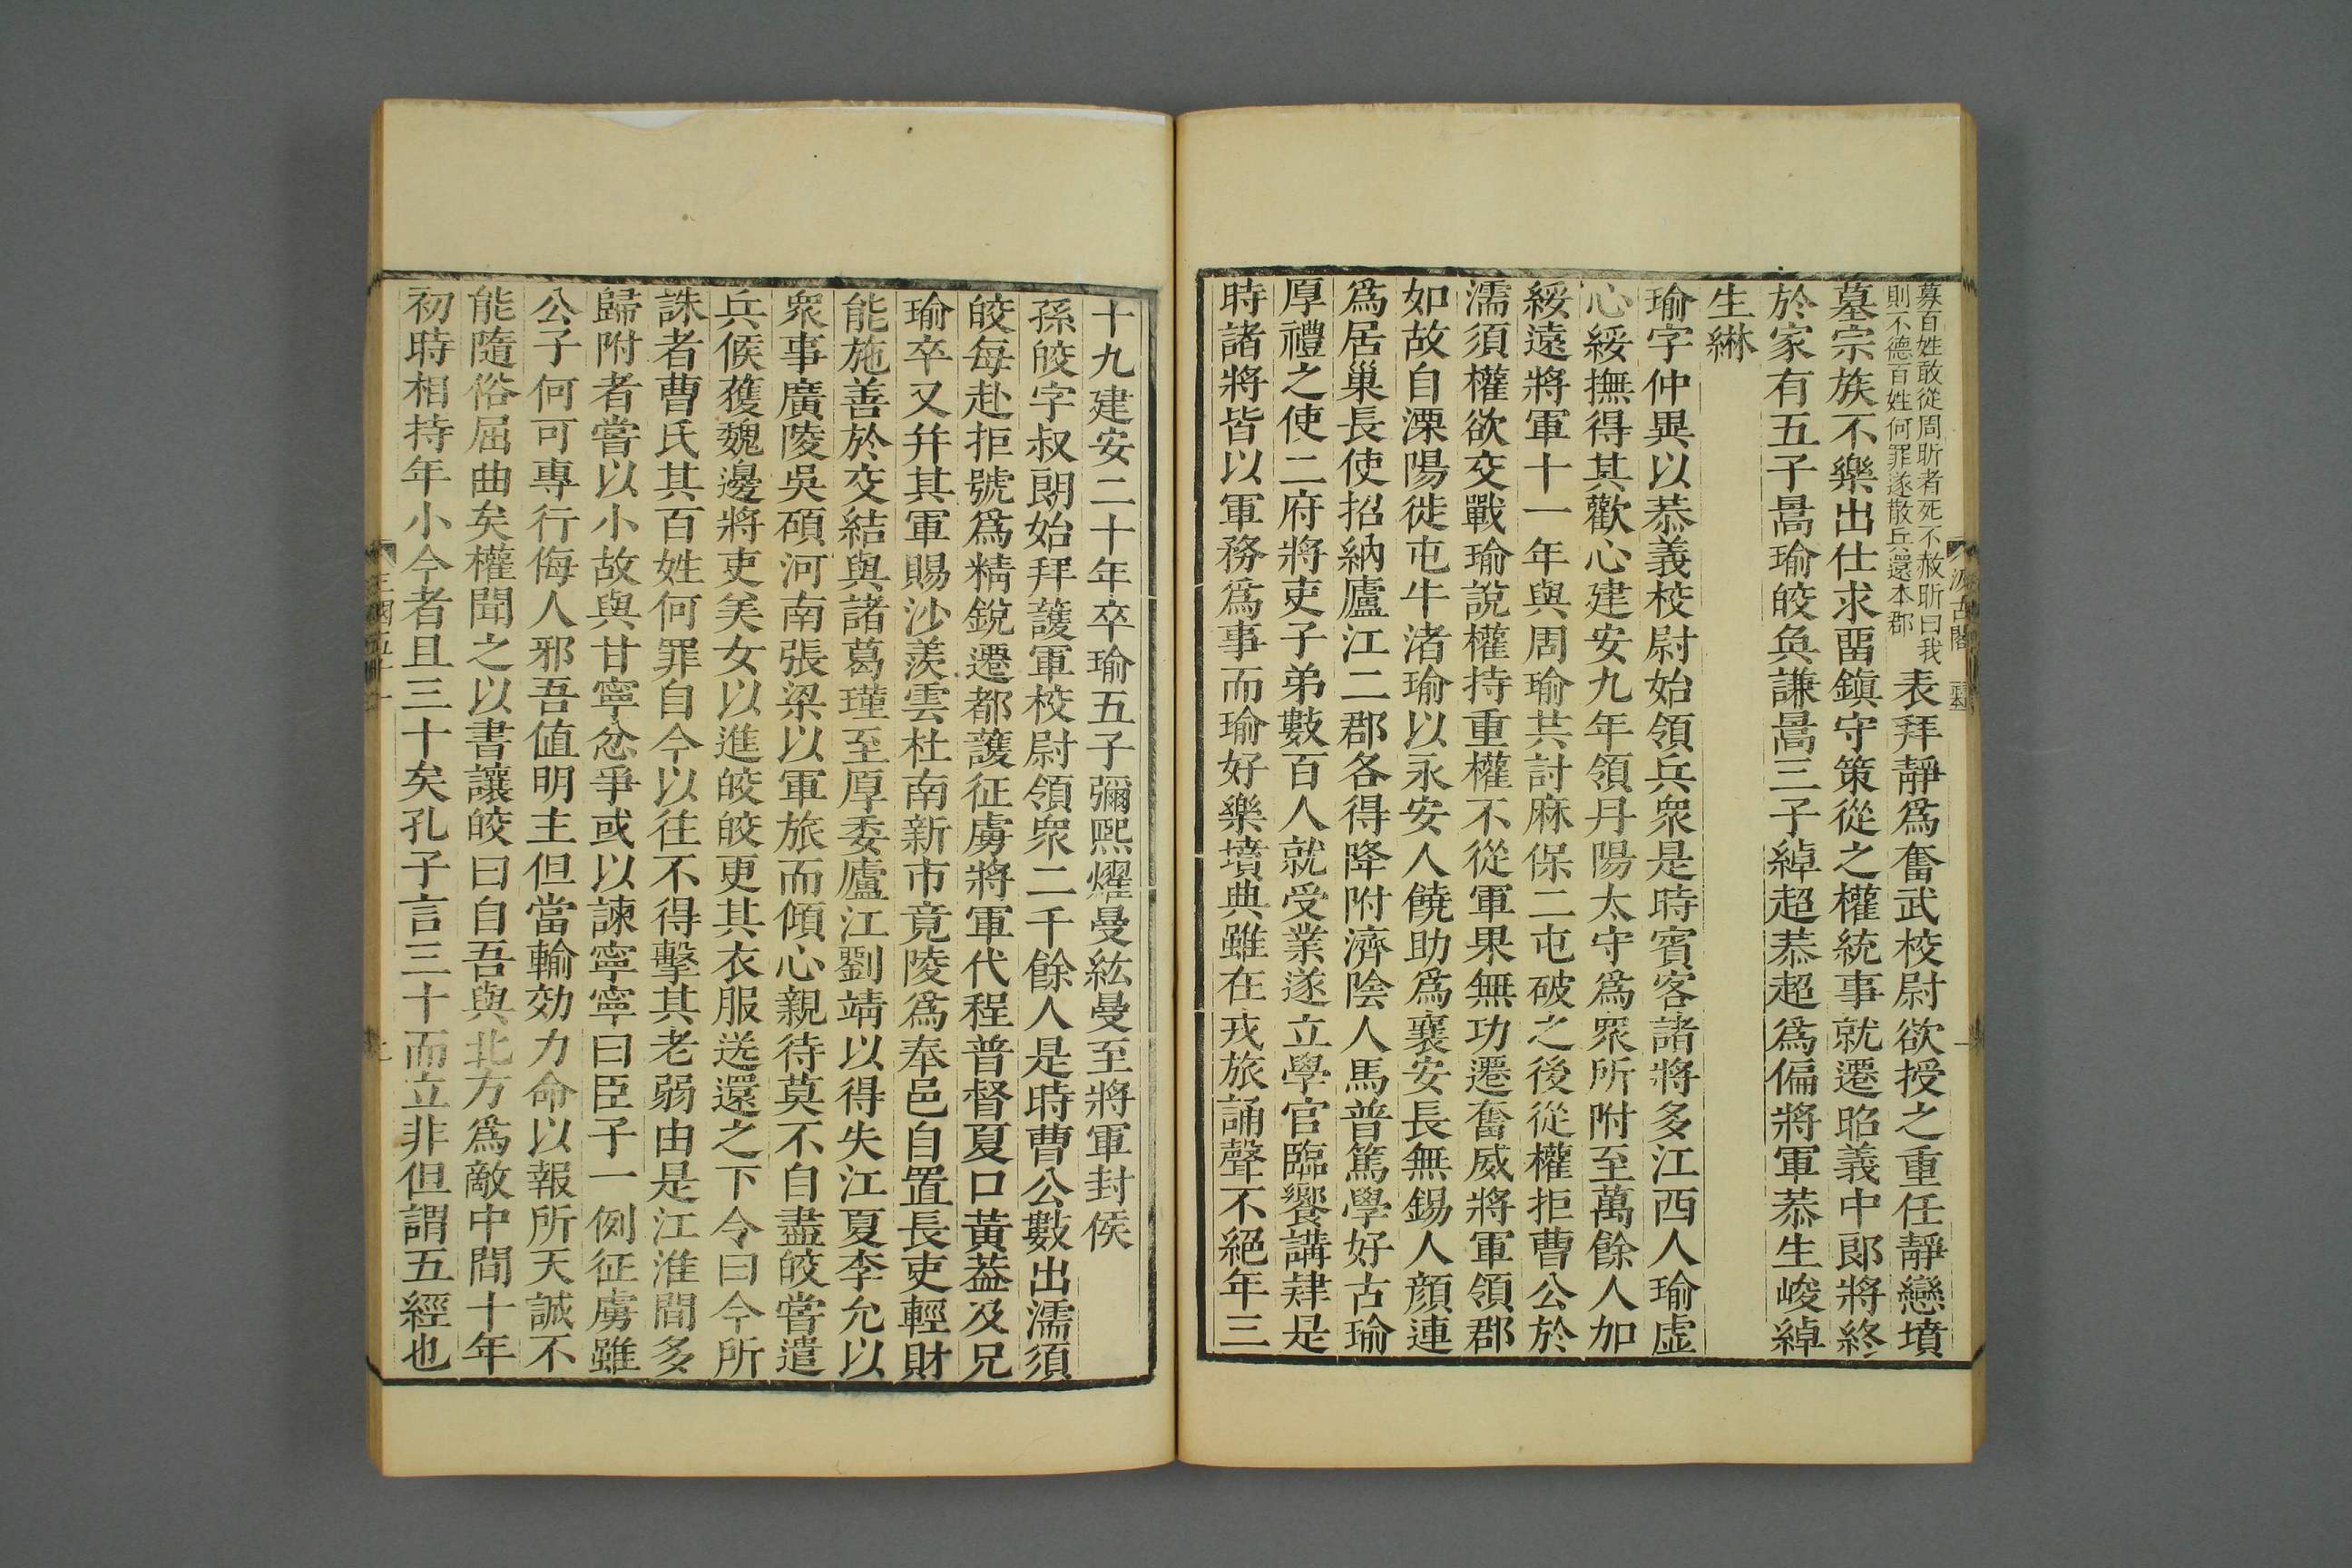 募百姓敢從周昕者死不赦昕曰我
則不德百姓何罪遂散兵還本郡
表拜靜爲奮武校尉欲授之重任靜戀墳
墓宗族不樂出仕求畱鎮守策從之權統事就遷昭義中郎將終
於家有五子暠瑜皎奐謙暠三子綽超恭超爲偏將軍恭生峻綽
生綝
瑜字仲異以恭義校尉始領兵衆是時賓客諸將多江西人瑜虛
心綏撫得其歡心建安九年領丹陽太守爲衆所附至萬餘人加
綏遠將軍十一年與周瑜共討麻保二屯破之後從權拒曹公於
濡須權欲交戰瑜說權持重權不從軍果無功遷奮威將軍領郡
如故自溧陽徙屯牛渚瑜以永安人饒助爲襄安長無錫人顏連
爲居巢長使招納廬江二郡各得降附濟陰人馬普篤學好古瑜
厚禮之使二府將吏子弟數百人就受業遂立學官臨饗講肄是
時諸將皆以軍務爲事而瑜好樂墳典雖在戎旅誦聲不絕年三
汲古閣
一
十九建安二十年卒瑜五子彌熙燿曼紘曼至將軍封侯
孫皎字叔朗始拜護軍校尉領衆二千餘人是時曹公數出濡須
皎每赴拒號爲精銳遷都護征虜將軍代程普督夏口黃蓋及兄
瑜卒又幷其軍賜沙羨雲杜南新市竟陵爲奉邑自置長吏輕財
能施善於交結與諸葛瑾至厚委廬江劉靖以得失江夏李允以
衆事廣陵吳碩河南張梁以軍旅而傾心親待莫不自盡皎嘗遣
兵候獲魏邊將吏美女以進皎皎更其衣服送還之下令曰今所
誅者曹氏其百姓何罪自今以往不得擊其老弱由是江淮間多
歸附者嘗以小故與甘寧忿爭或以諫寧寧曰臣子一例征虜雖
公子何可專行侮人邪吾值明主但當輸効力命以報所天誠不
能隨俗屈曲矣權聞之以書讓皎曰自吾與北方爲敵中間十年
初時相持年小今者且三十矣孔子言三十而立非但謂五經也